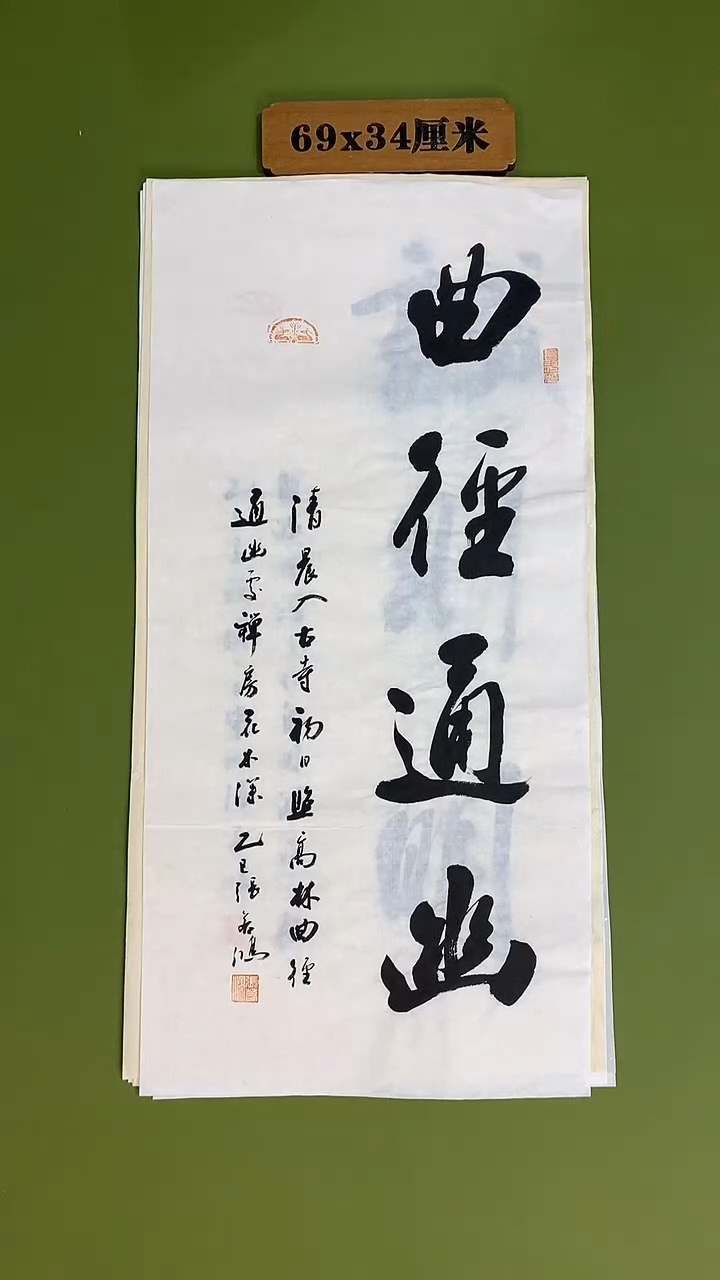 69x34厘米
曲徑通幽
清晨入古寺初日照高林曲徑
通幽處禅房花木深乙巳張若鴻